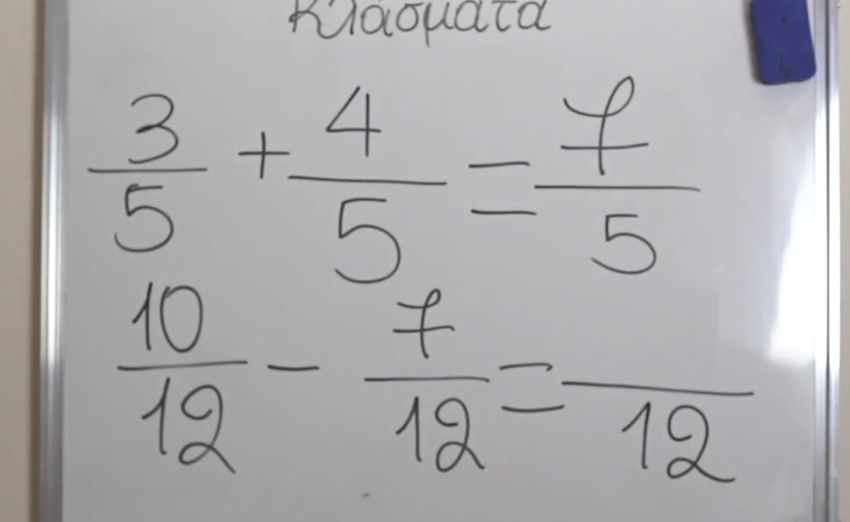 Κλάσματα
3/5 + 4/5 = 7/5
10/12 - 7/12 = /12